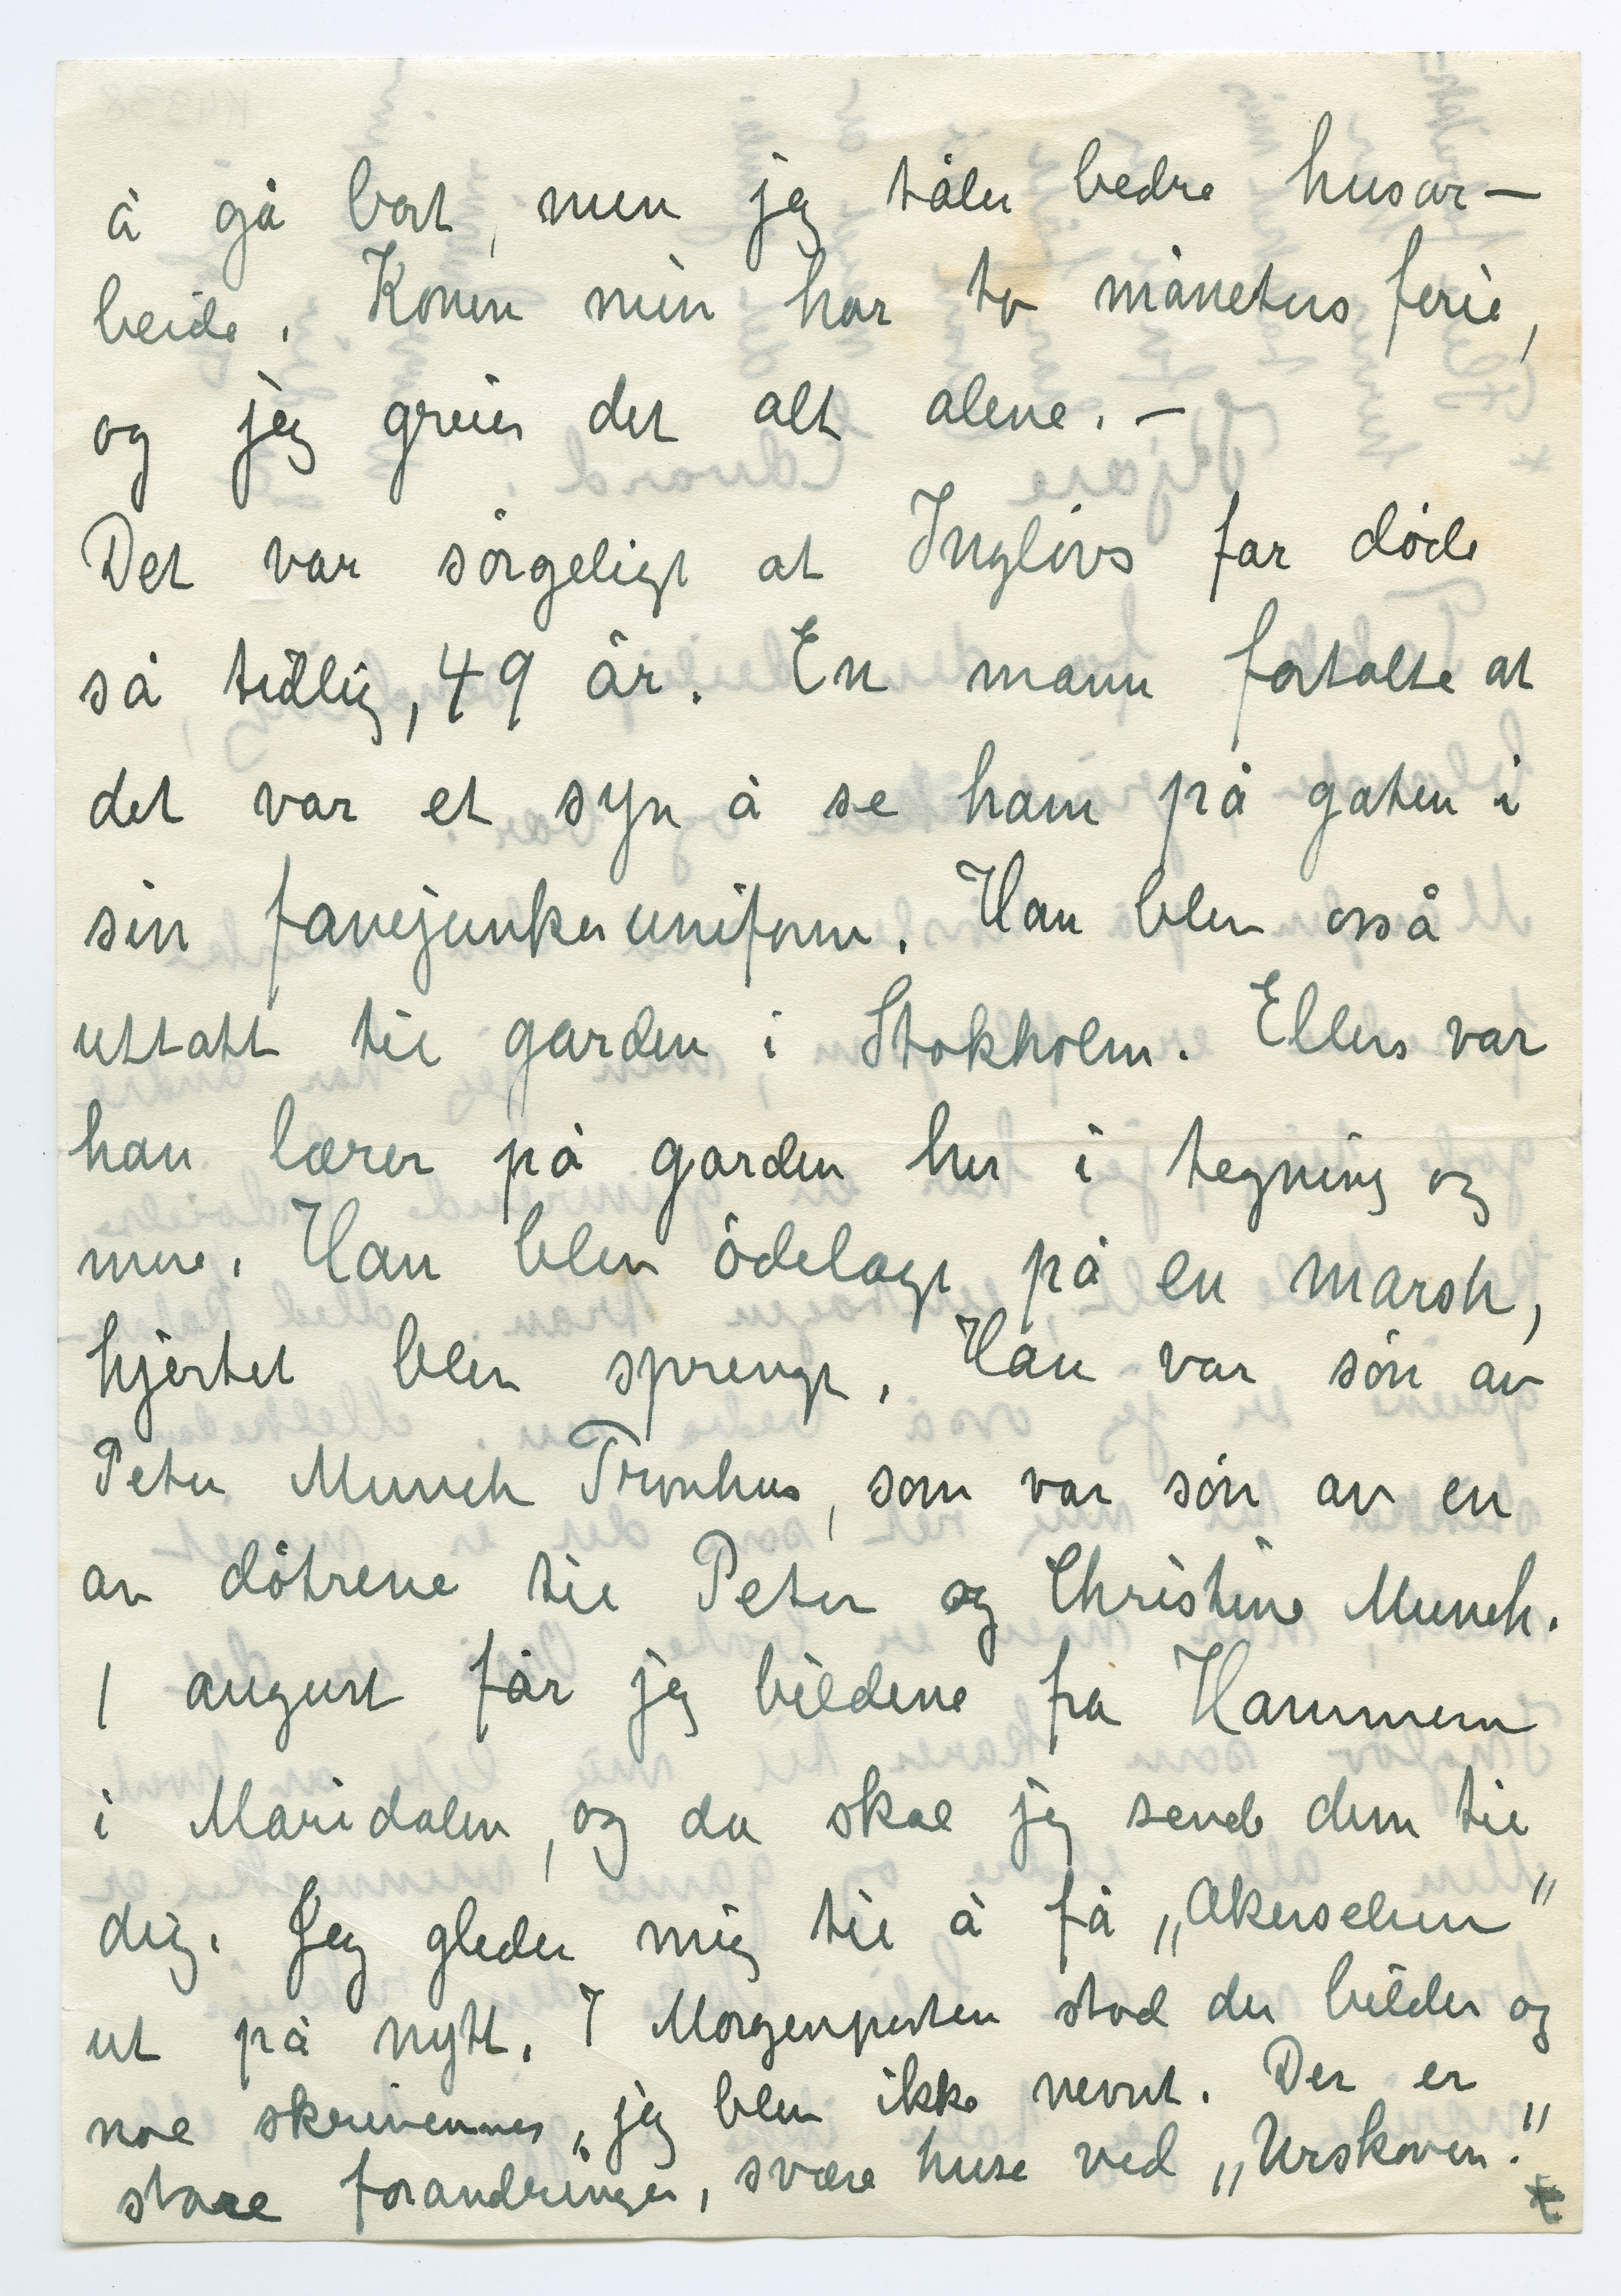 å gå bort, men jeg tåler bedre husar—
beide. Konen min har to måneters ferie,
og jeg greier det alt alene. —
Det var sörgeligt at Inglövs far døde
så tidlig, 49 år. En mann fortalte at
det var et syn å se ham på gaten i
sin fanejunkeruniform. Han blev også
uttatt til garden i Stokholm. Ellers var
han lærer på garden her i tegning og
mere. Han blev ödelagt på en marsh,
hjertet blev sprengt. Han var sön av
Peter Munch Tronhus, som var sön av en
av dötrene til Peter og Christine Munch.
I august får jeg bildene fra Hammeren
i Maridalen, og da skal jeg sende dem til
dig. Jeg gleder mig til å få „Akerselven”
ut på nytt. I Morgenposten stod der bilder og
noe skrivennes, jeg blev ikke nevnt. Der er
store forandringer, svære huse ved „Urskoven.”